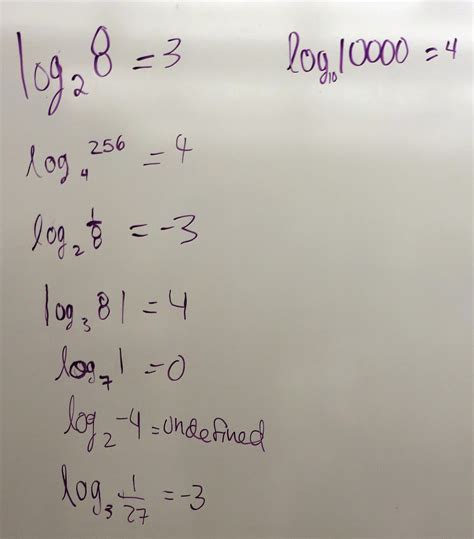 log₂8 = 3
log₁₀10000 = 4
log₄256 = 4
log₂1/8 = -3
log₃81 = 4
log₇1 = 0
log₂-4 = undefined
log₃1/27 = -3